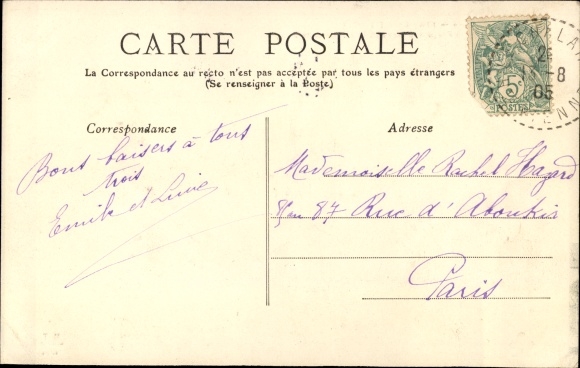 CARTE POSTALE
La Correspondance au recto n'est pas acceptée par tous les pays étrangers
(Se renseigner à la Poste)
Correspondance
Bons baisers à tous
trois
Emile et
Adresse
Mademoiselle Rachel Hazard
87 Rue d'Aboukir
Paris
5c
POSTES
8
05